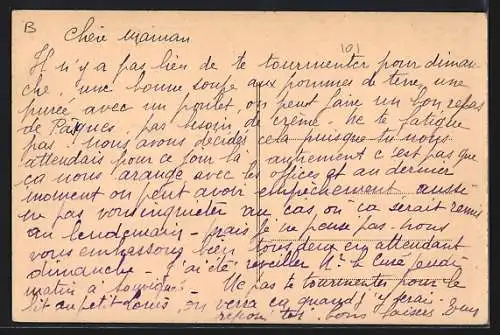 B
101
Chère Maman
Il n'y a pas lieu de te tourmenter pour diman-
che, une bonne soupe aux pommes de terre, une
purée avec un poulet, on peut faire un bon repas
de Pâques, pas besoin de crème. Ne te fatigue
pas. nous avons décidés cela puisque tu nous
attendais pour ce jour là, autrement c'est pas que
ça nous arange avec les offices et au dernier
moment on peut avoir empêchement aussi
ne pas vous inquiéter au cas, où ça serait remis
au lendemain - mais je ne pense pas. nous
vous embrassons bien tous deux en attendant
dimanche - j'ai été réveiller Mr le Curé jeudi
matin à Ne pas te tourmenter pour le
lit au petit Louis, on verra ça quand j'y serai.
bons baisers